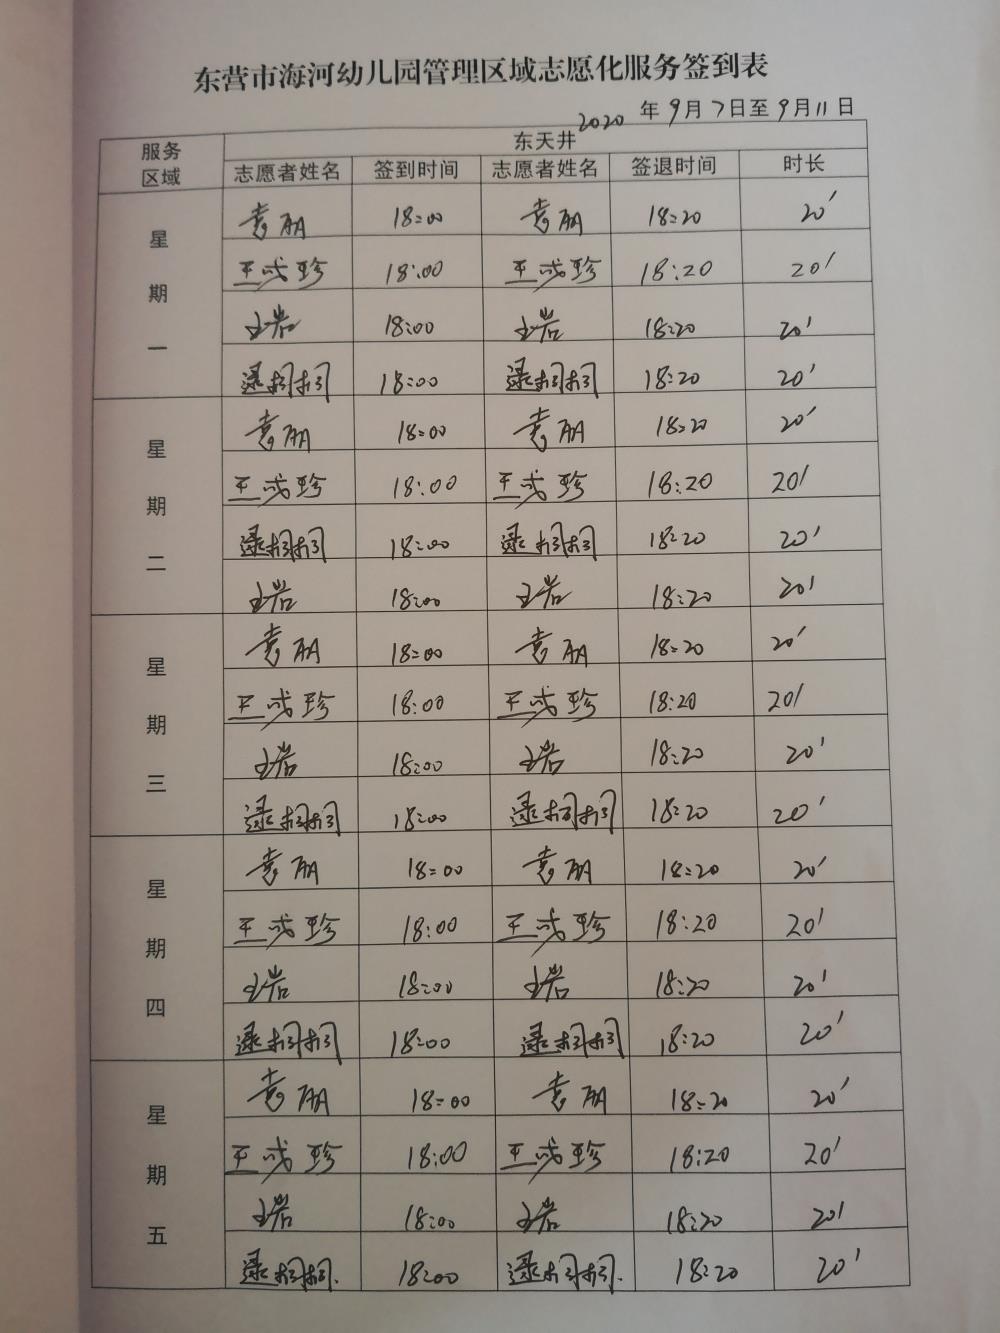 东营市海河幼儿园管理区域志愿化服务签到表
2020 年 9月 7日至 9月 11 日
服务区域 东天井
志愿者姓名 签到时间 志愿者姓名 签退时间 时长
星期一
袁丽 18:00 袁丽 18:20 20'
王成珍 18:00 王成珍 18:20 20'
王岩 18:00 王岩 18:20 20'
逯栩栩 18:00 逯栩栩 18:20 20'
星期二
袁丽 18:00 袁丽 18:20 20'
王成珍 18:00 王成珍 18:20 20'
18:00 18:20 20'
王岩 18:00 王岩 18:20 20'
星期三
袁丽 18:00 袁丽 18:20 20'
王成珍 18:00 王成珍 18:20 20'
王岩 18:00 王岩 18:20 20'
18:00 18:20 20'
星期四
袁丽 18:00 袁丽 18:20 20'
王成珍 18:00 王成珍 18:20 20'
王岩 18:00 王岩 18:20 20'
18:00 18:20 20'
星期五
袁丽 18:00 袁丽 18:20 20'
王成珍 18:00 王成珍 18:20 20'
王岩 18:00 王岩 18:20 20'
18:00 18:20 20'